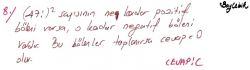 8-) (47!)² sayısının ne kadar pozitif
böleni varsa, o kadar negatif böleni
vardır. Bu bölenler toplanırsa cevap 0
olur.
CEVAP: C